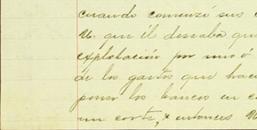 cuando comenzó sus
U. que él deseaba que
explotación por uno ó
de los gastos que hace
poner los barcos en e
un corte, & entonces